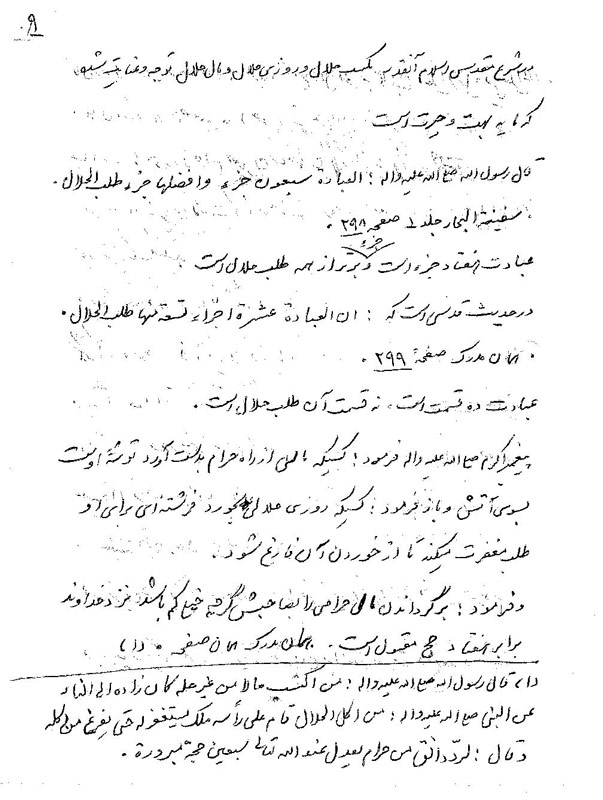 ۹
در شرع مقدس اسلام آنقدر بکسب حلال و روزی حلال و مال حلال توجه و عنایت شده
که مایه بهت و حیرت است
قال رسول الله صلی الله علیه و اله : العبادة سبعون جزء و افضلها جزء طلب الحلال .
سفینة البحار جلد ۱ صفحه ۲۹۸ .
عبادت هفتاد جزء است و برتر از همه جزء طلب حلال است .
در حدیث قدسی است که : ان العبادة عشرة اجزاء تسعة منها طلب الحلال .
همان مدرک صفحهٔ ۲۹۹ .
عبادت ده قسمت است ، نه قسمت آن طلب حلال است .
پیغمبر اکرم صلی الله علیه و اله فرمود : کسیکه مالی از راه حرام بدست آورد توشهٔ اوست
بسوی آتش و باز فرمود : کسیکه روزی حلالی بخورد فرشته ای برای او
طلب مغفرت میکند تا از خوردن آن فارغ شود .
و فرمود : برگرداندن مال حرامی را بصاحبش گرچه خیلی کم باشد نزد خداوند
برابر هفتاد حج مقبول است . همان مدرک همان صفحه . (۱)
(۱) قال رسول الله صلی الله علیه و اله : من اکتسب مالا من غیر حله کان زاده الی النار
عن النبی صلی الله علیه و اله : من اکل الحلال قام علی رأسه ملک یستغفر له حتی یفرغ من اکله
و قال : لردّ دانق من حرام یعدل عند الله تعالی سبعین حجة مبرورة .